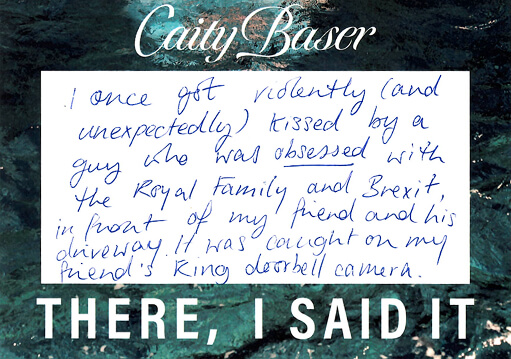 Caity Baser
I once got violently (and
unexpectedly) kissed by a
guy who was obsessed with
the Royal Family and Brexit,
in front of my friend and his
driveway. It was caught on my
friend's Ring doorbell camera.
THERE, I SAID IT